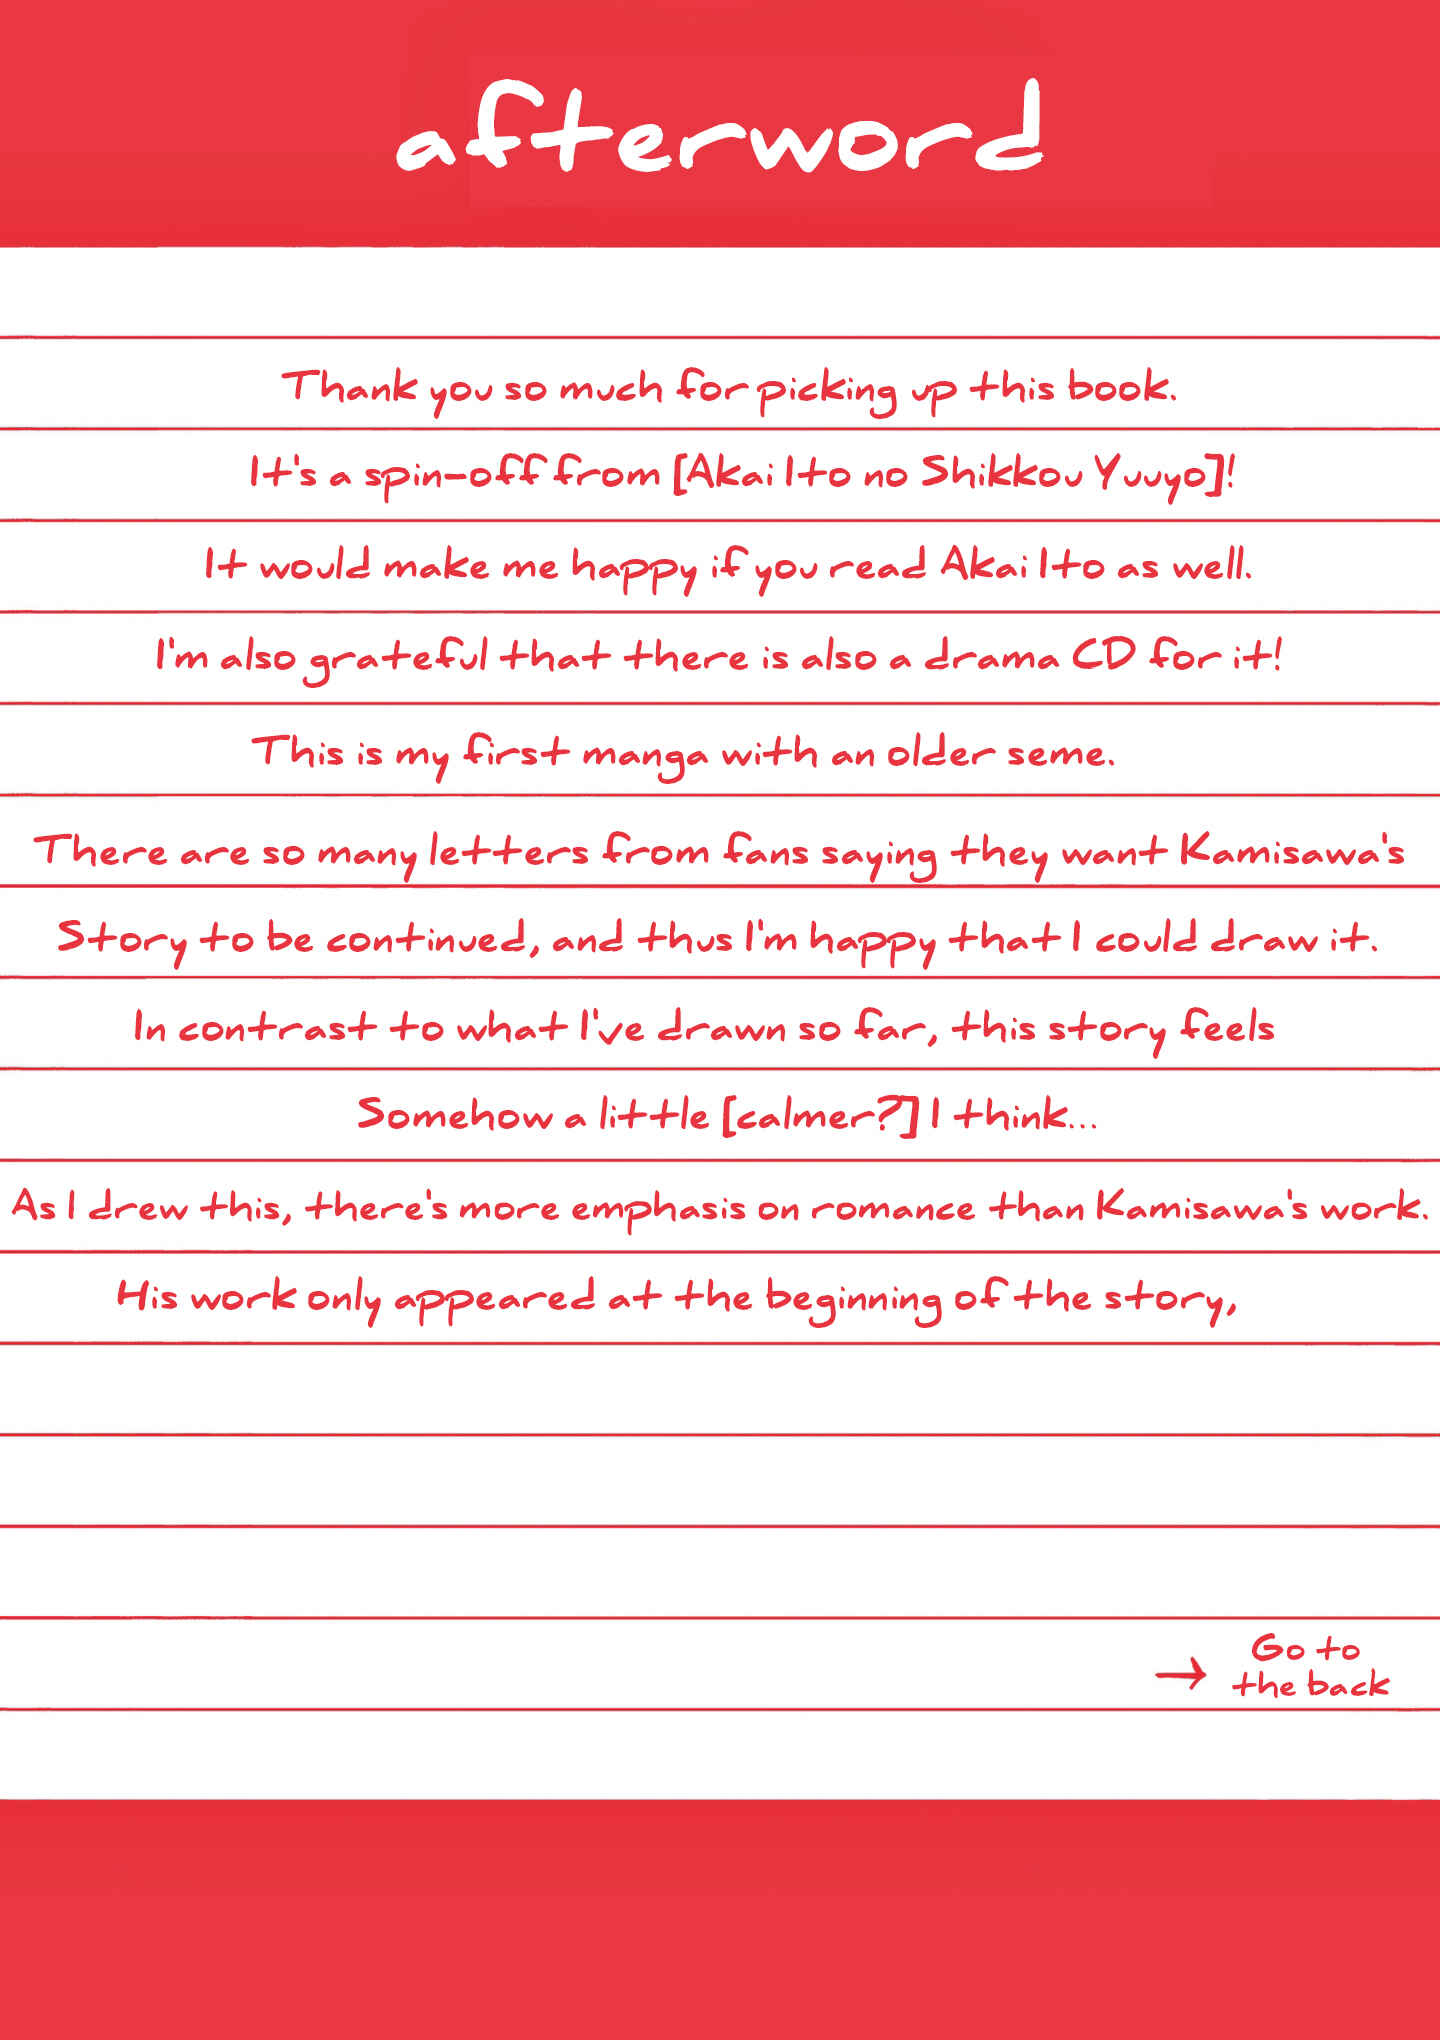 afterword
Thank you so much for picking up this book.
It's a spin-off from [Akai Ito no Shikkou Yuuyo]!
It would make me happy if you read Akai Ito as well.
I'm also grateful that there is also a drama CD for it!
This is my first manga with an older seme.
There are so many letters from fans saying they want Kamisawa's
Story to be continued, and thus I'm happy that I could draw it.
In contrast to what I've drawn so far, this story feels
Somehow a little [calmer?] I think...
As I drew this, there's more emphasis on romance than Kamisawa's work.
His work only appeared at the beginning of the story,
→ Go to
the back